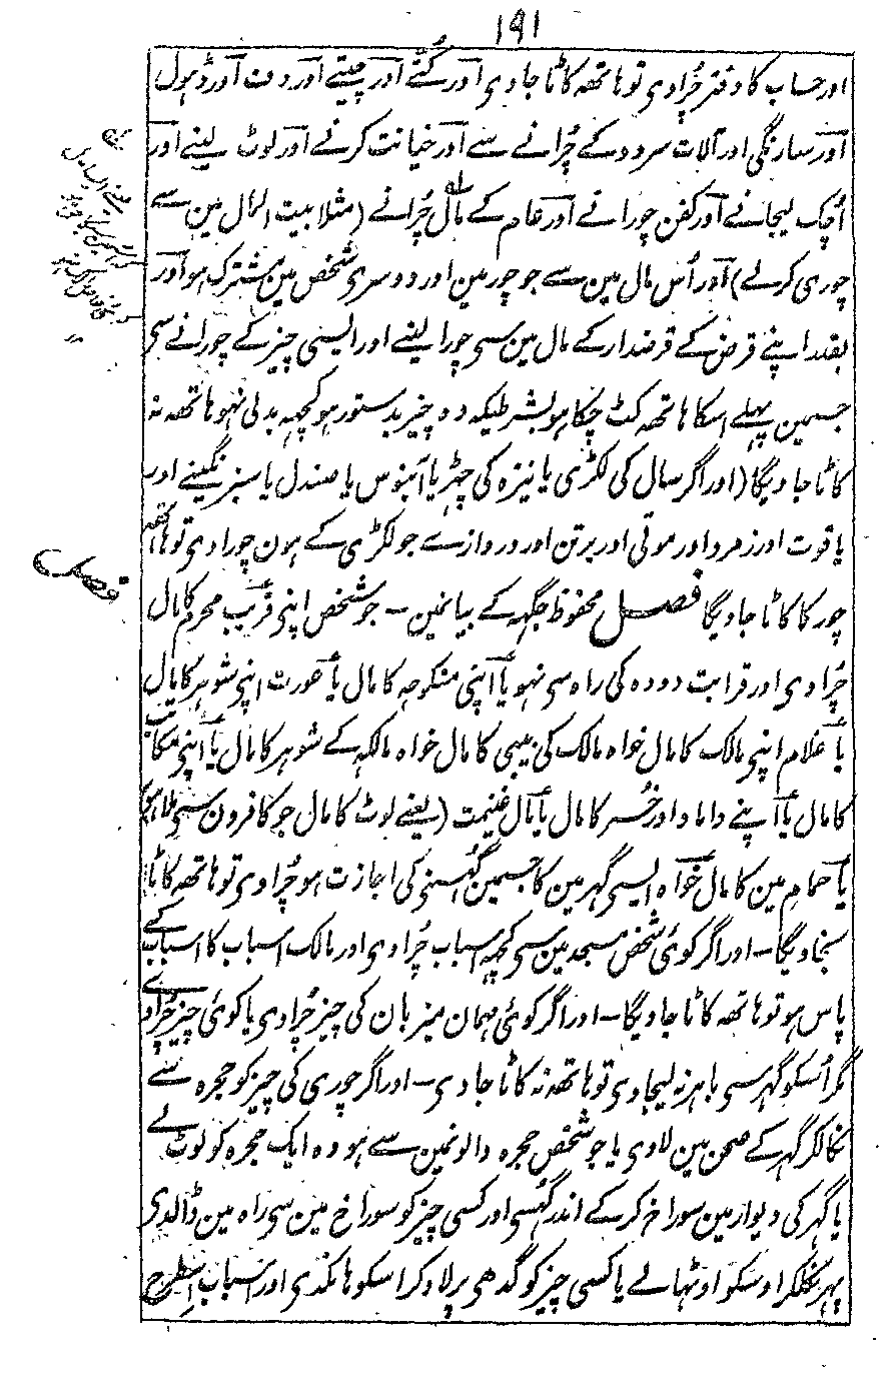 ۱۹۱
اور حساب کا دفتر چُراوی تو ہاتھہ کاٹا جاوی اور کُتّے اور چیتے اور دف اور ڈہول
اور سارنگی اور آلات سرود کے چُرانے سے اور خیانت کرنے اور لوٹ لینے اور
اُچک لیجانے اور کفن چورانے اور عام کے مال چُرانے (مثلا بیت المال مین سے
چوری کرلے) اور اُس مال مین سے جو چور مین اور دوسری شخص مین مشترک ہو اور
بقدر اپنے قرض کے قرضدار کے مال مین سی چورا لینے اور ایسی چیز کے چورانے سی
جسمین پہلے اسکا ہاتھہ کٹ چکا ہو بشرطیکہ وہ چیز بدستور ہو کچہہ بدلی نہو ہاتھہ نہ
کاٹا جاویگا (اور اگر سال کی لکڑی یا نیزہ کی چھڑ یا آبنوس یا صندل یا سبز نگینے اور
یاقوت اور زمرد اور موتی اور برتن اور دروازے جو لکڑی کے ہون چوراوی تو ہاتھہ
فصل
چور کا کاٹا جاویگا فصل محفوظ جگہہ کے بیانمین – جو شخص اپنی قریب محرم کا مال
چُراوی اور قرابت دودہ کی راہ سی نہو یا اپنی منکوحہ کا مال یا عورت اپنی شوہر کا مال
یا غلام اپنی مالک کا مال خواہ مالک کی بیبی کا مال خواہ مالکہ کے شوہر کا مال یا اپنی مکاتب
کا مال یا اپنے داماد اور خُسر کا مال یا مال غنیمت (یعنے لوٹ کا مال جو کافرون سی ملا ہو)
یا حمام مین کا مال خواہ ایسی گہر مین کا جسمین گُہسنی کی اجازت ہو چُراوی تو ہاتھہ کاٹا
نجاویگا – اور اگر کوئی شخص مسجد مین سی کچہہ اسباب چُراوی اور مالک اسباب کا اسباب کے
پاس ہو تو ہاتھہ کاٹا جاویگا – اور اگر کوئی مہمان میزبان کی چیز چُراوی یا کوئی چیز چُراوے
مگر اُسکو گہر سی باہر نہ لیجاوی تو ہاتھہ نہ کاٹا جاوی – اور اگر چوری کی چیز کو حجرہ سے
نکالکر گہر کے صحن مین لاوی یا جو شخص حجرہ والونمین سے ہو وہ ایک حجرہ کو لوٹ لے
یا گہر کی دیوار مین سوراخ کرکے اندر گُہسی اور کسی چیز کو سوراخ مین سی راہ مین ڈالدی
پہر نکلکر اوسکو اوٹہالے یا کسی چیز کو گدہی پر لادکر اسکو ہانکدی اور اسباب اسطرح